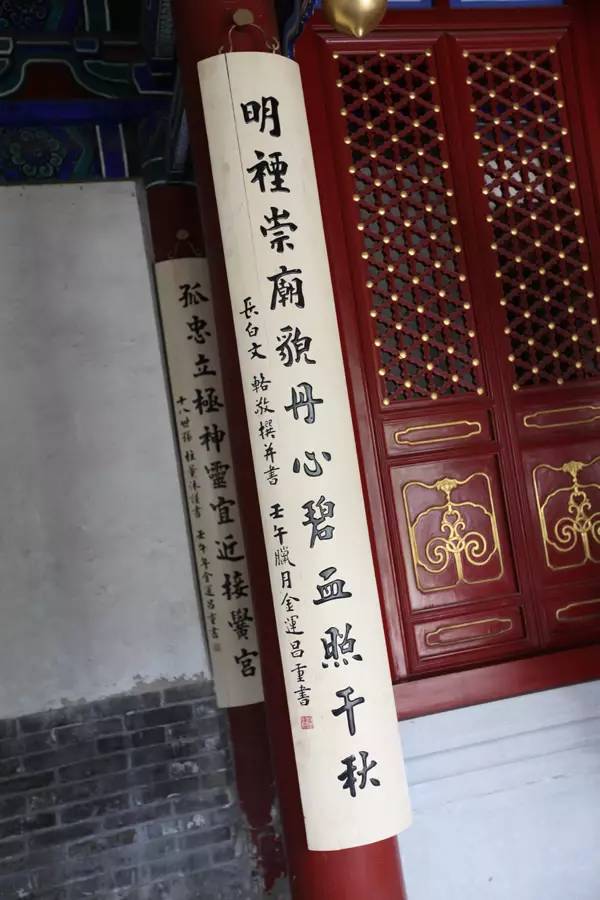 明禋崇廟貌丹心碧血照千秋
長白文 輅敬撰并書 壬午臘月金運昌重書
孤忠立極神靈宜近接黌宮
十八世孫 謹書 壬午年金運昌重書